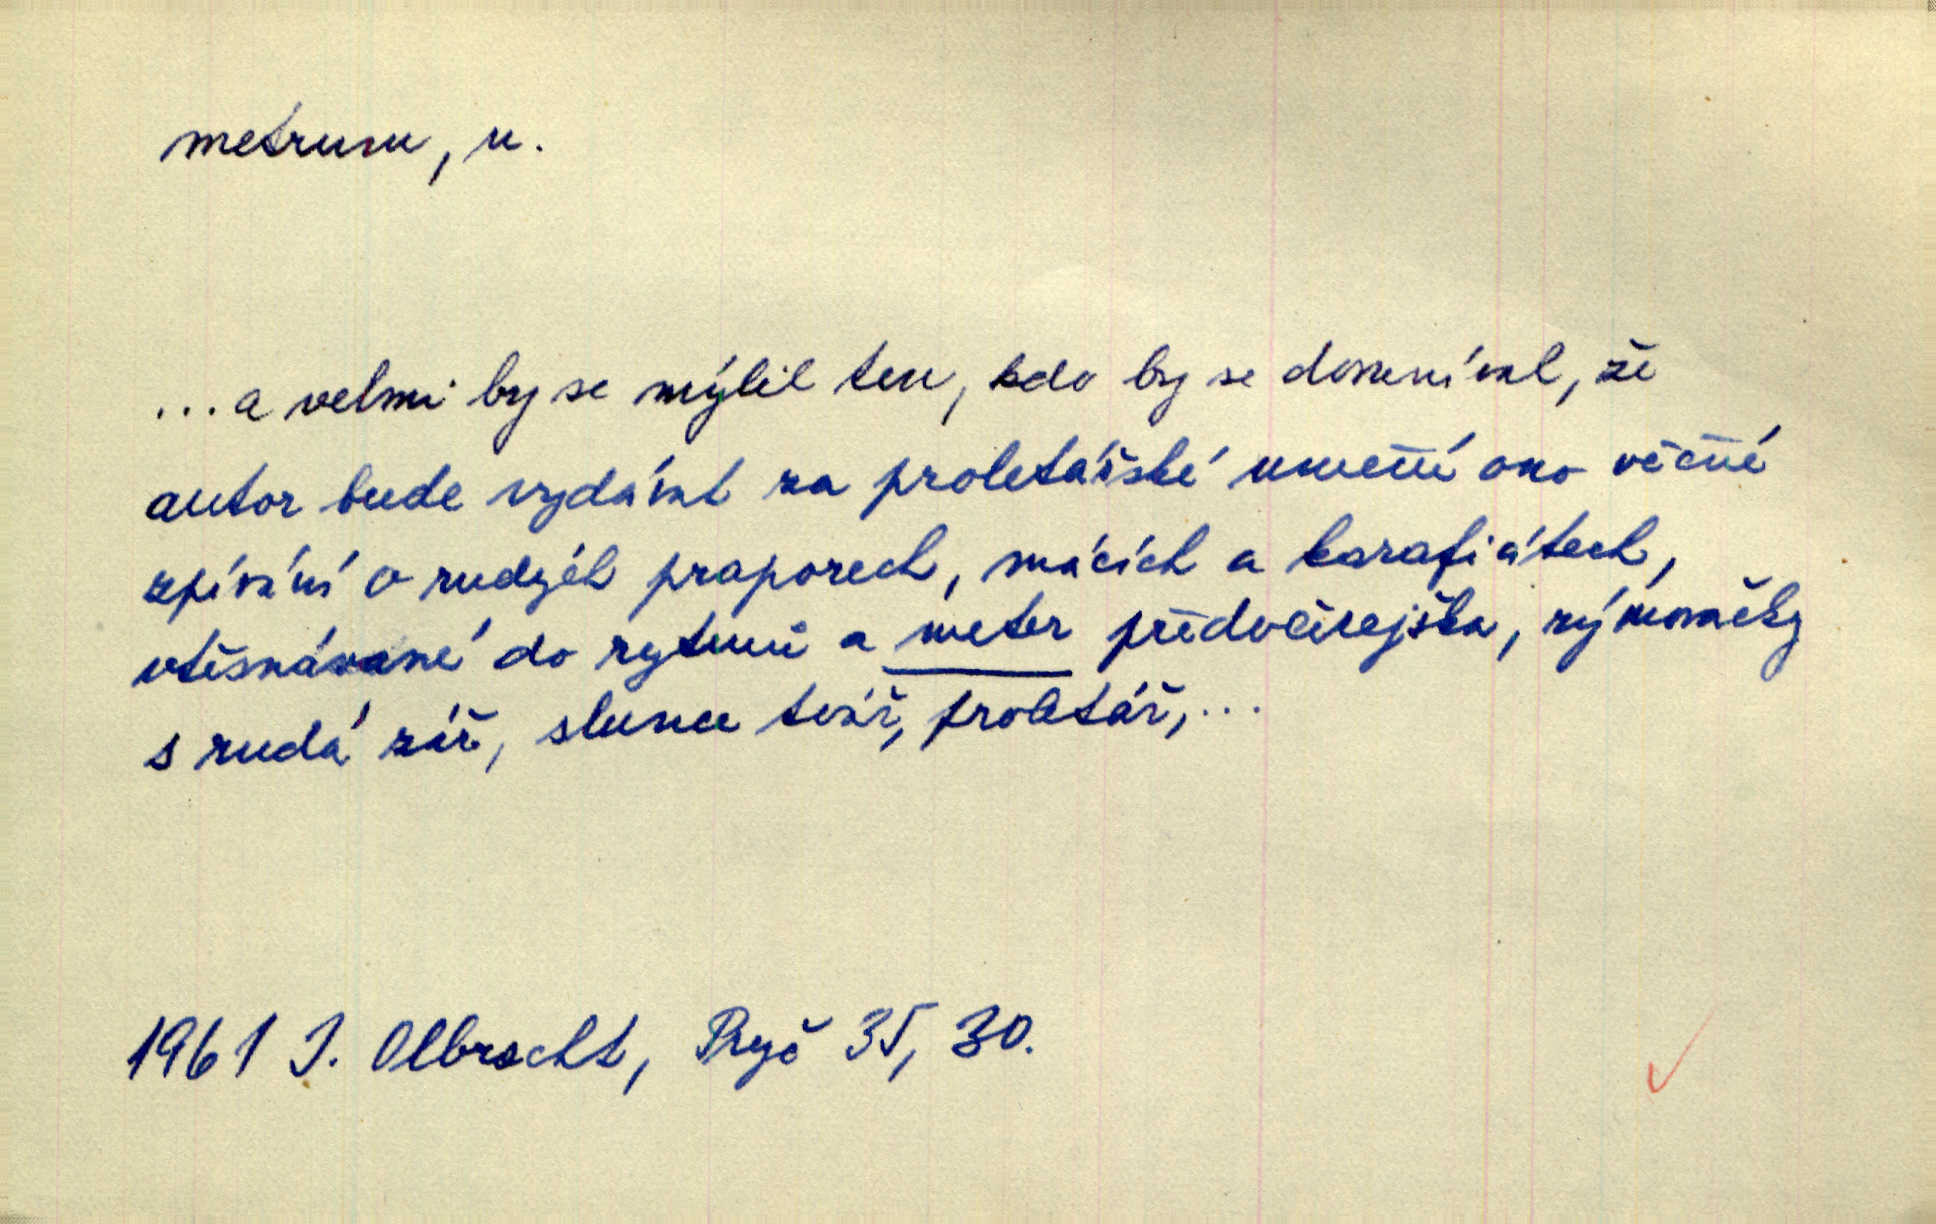 metrum, n.
...a velmi by se mýlil ten, kdo by se domníval, že
autor bude vydávat za proletářské umění ono věčné
zpívání o rudých praporech, mácích a karafiátech,
vtěsnávané do rytmů a meter předvčerejška, rýmovačky
s rudá zář, slunce tvář, proletář,...
1961 I. Olbracht, Pryč 35, 30.